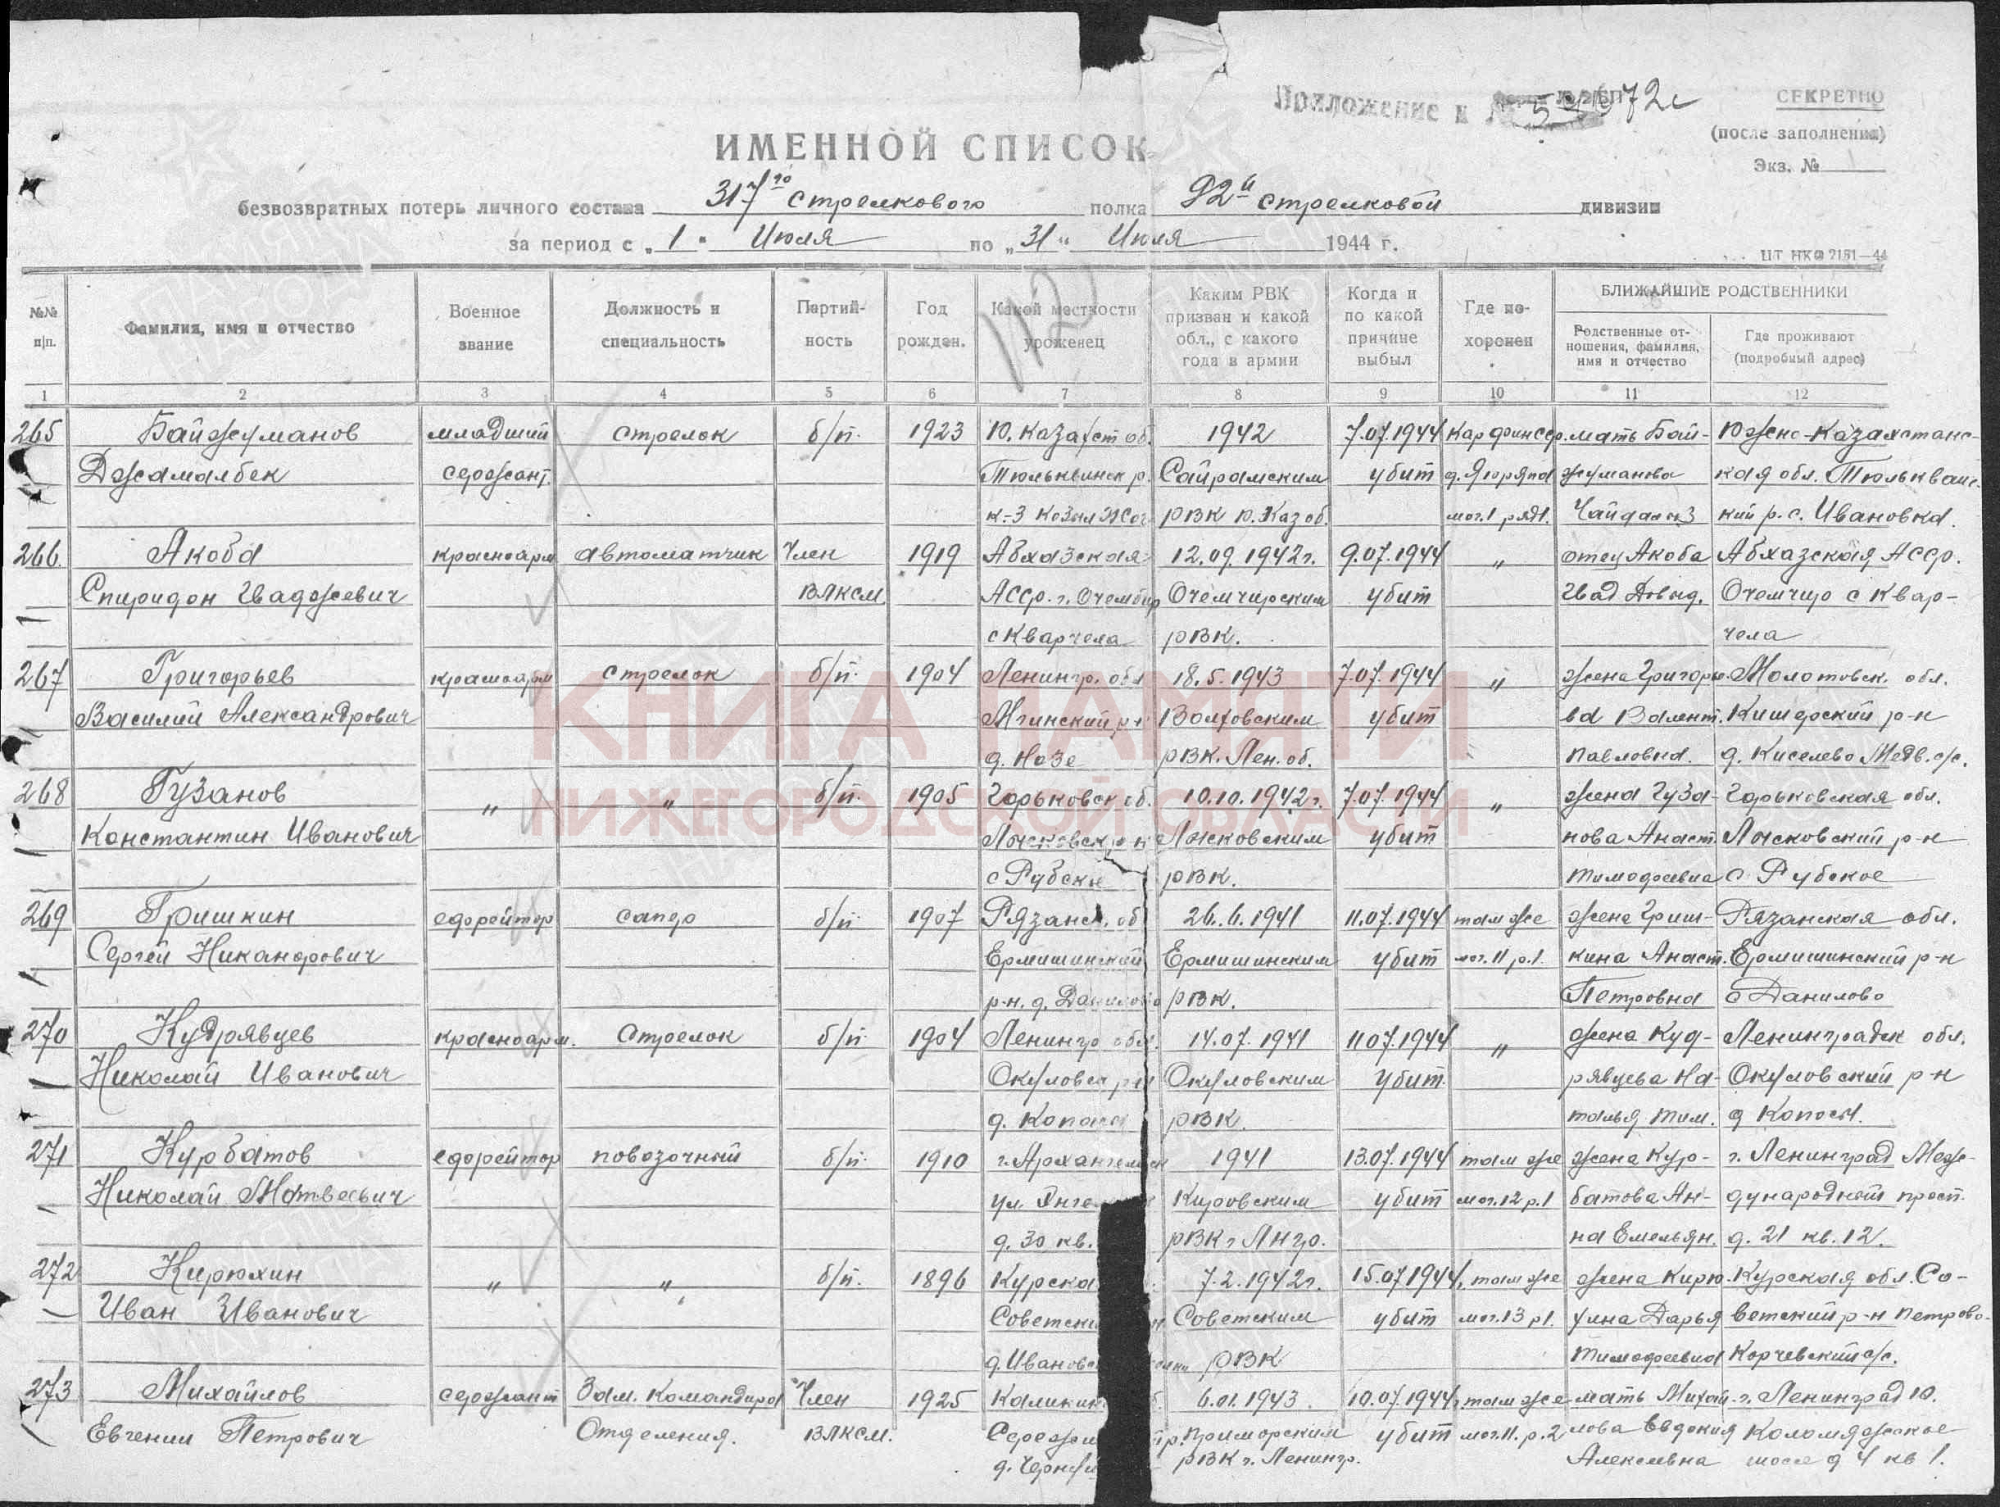 Приложение к № 72с
СЕКРЕТНО
(после заполнения)
Экз. № 1
ИМЕННОЙ СПИСОК
безвозвратных потерь личного состава 317го стрелкового полка 92й стрелковой дивизии
за период с „1" Июля по „31" Июля 1944 г.
ЦТ НКО 2151—44
112
№№ п/п. Фамилия, имя и отчество Военное звание Должность и специальность Партийность Год рожден. Какой местности уроженец Каким РВК призван и какой обл., с какого года в армии Когда и по какой причине выбыл Где похоронен БЛИЖАЙШИЕ РОДСТВЕННИКИ
Родственные отношения, фамилия, имя и отчество Где проживают (подробный адрес)
1 2 3 4 5 6 7 8 9 10 11 12
265 Байжуманов младший стрелок б/п. 1923 Ю. Казахст об. 1942 7.07.1944 Карфинсср. мать Бай- Южно-Казахстанс-
Джамалбек сержант. Тюльквинск р. Сайрамским убит жуманова кая обл. Тюльквинс-
РВК Ю. Каз об. мог.1 ряд1. кий р. с. Ивановка.
266. Акоба красноарм автоматчик Член 1919 Абхазская 12.09.1942г. 9.07.1944 „ отец Акоба Абхазская АССр.
Спиридон Гваджевич ВЛКСМ АССр. г. Очемчир Очемчирским убит Очемчир с Квар-
с Кварчела РВК. чела
267 Григорьев красноарм стрелок б/п. 1904 Ленингр. обл 18.5.1943 7.07.1944 „ жена Григорь- Молотовск. обл.
Василий Александрович Мгинский р-н Волховским убит ва Валент. Кишерский р-н
д. Назе РВК. Лен. об. Павловна. д. Киселево Медв. с/с.
268 Гузанов „ „ б/п. 1905 Горьковск об. 10.10.1942г. 7.07.1944 „ жена Гуза- Горьковская обл.
Константин Иванович Лысковск р-н Лысковским убит нова Анаст. Лысковский р-н
с Рубско РВК. Тимофеевна с. Рубское
269 Гришкин ефрейтор сапер б/п 1907 Рязанс. об 26.6.1941 11.07.1944 там же жена Гриш- Рязанская обл.
Сергей Никанорович Ермишинский Ермишинским убит мог.11 р.1. кина Анаст. Ермишинский р-н
р-н. д. Данилово РВК. Петровна с Данилово
270 Кудрявцев красноарм. Стрелок б/п. 1904 Ленингр обл. 14.07.1941 11.07.1944 „ жена Куд- Ленинградск обл.
Николай Иванович Окуловск р-н Окуловским убит. рявцева На- Окуловский р-н
РВК. талья Тим. д Копосы.
271 Курбатов ефрейтор повозочный б/п. 1910 г. Архангельск 1941 13.07.1944 там же жена Кур- г. Ленинград Меж-
Николай Матвеевич ул. Кировским убит мог.12 р.1 батова Ан- дународной просп.
д. 30 кв. РВК г Лнгр. на Емельян. д. 21 кв. 12.
272 Кирюхин „ „ б/п. 1896 Курска 7.2.1942г. 15.07.1944, там же жена Кирю- Курская обл. Со-
Иван Иванович Советски Советским убит мог.13 р1. хина Дарья ветский р-н Петрово-
д. Ивановс РВК Тимофеевна Корчевский с/с.
273 Михайлов сержант Зам. командира Член 1925 Калинин 6.01.1943. 10.07.1944, там же мать Михай- г. Ленинград 10.
Евгений Петрович Отделения. ВЛКСМ. Приморским убит мог.11. р.2 лова Евдокия Коломяжское
РВК г. Ленингр. Алексеевна шоссе д 4 кв 1.
КНИГА ПАМЯТИ
НИЖЕГОРОДСКОЙ ОБЛАСТИ
ПАМЯТЬ НАРОДА